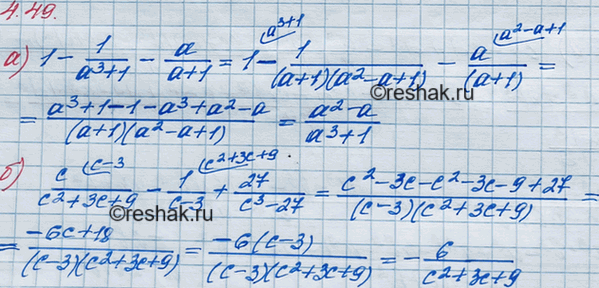 4.49.
а) 1 - 1/(a³+1) - a/(a+1) = 1^(a³+1) - 1/((a+1)(a²-a+1)) - a^(a²-a+1)/(a+1) =
= (a³+1-1-a³+a²-a)/((a+1)(a²-a+1)) = (a²-a)/(a³+1)
©reshak.ru
б) c^(c-3)/(c²+3c+9) - 1^(c²+3c+9)/(c-3) + 27/(c³-27) = (c²-3c-c²-3c-9+27)/((c-3)(c²+3c+9)) =
©reshak.ru
= (-6c+18)/((c-3)(c²+3c+9)) = (-6(c-3))/((c-3)(c²+3c+9)) = - 6/(c²+3c+9)